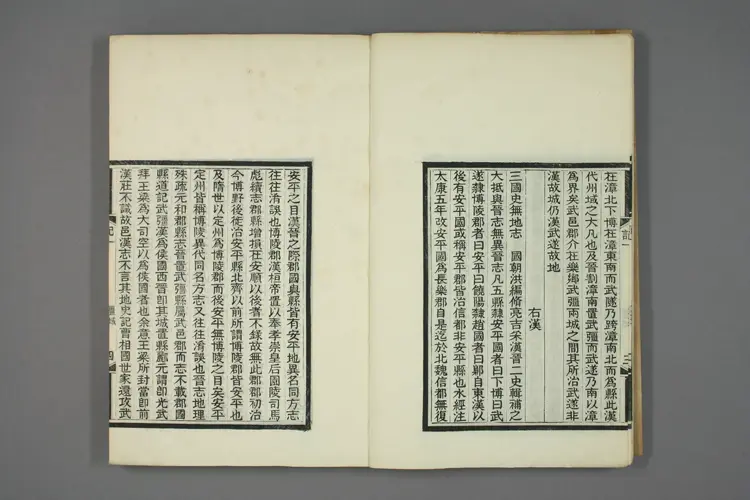 在漳北下博在漳東南而武隧乃跨漳南北而爲縣此漢
代州域之大凡也及晉割漳南置武彊而武遂乃南以漳
爲界矣武邑郡介在樂鄉武彊兩城之間其所治武遂非
漢故城仍漢武遂故地
右漢
三國史無地志 國朝洪編脩亮吉采漢晉二史輯補之
大抵與晉志無異晉志凡五縣隸安平國者曰下博曰武
遂隸博陵郡者曰安平曰饒陽隸趙國者曰鄡自東漢以
後有安平國或稱安平郡皆治信都非安平縣也水經注
太康五年改安平國爲長樂郡自是迄於北魏信都無復
安平之目漢晉之際郡國與縣皆有安平地異名同方志
往往淆誤也博陵郡漢桓帝置以奉孝崇皇后園陵司馬
彪續志郡縣增損在安順以後者不錄故無此郡郡初治
今博野後徙治安平縣北齊以前所謂博陵郡皆安平也
及隋世以定州爲博陵郡而後安平無博陵之目矣安平
定州皆稱博陵異代同名方志又往往淆誤也晉志地理
殊疏元和郡縣志晉置武彊縣屬武邑郡而志不載郡國
縣道記武彊漢爲侯國西晉卽其城置縣酈元謂卽光武
拜王梁爲大司空以爲侯國者也余意王梁所封當卽前
漢莊不識故邑漢志不言其地史記曹相國世家還攻武
記一
三
記一
四